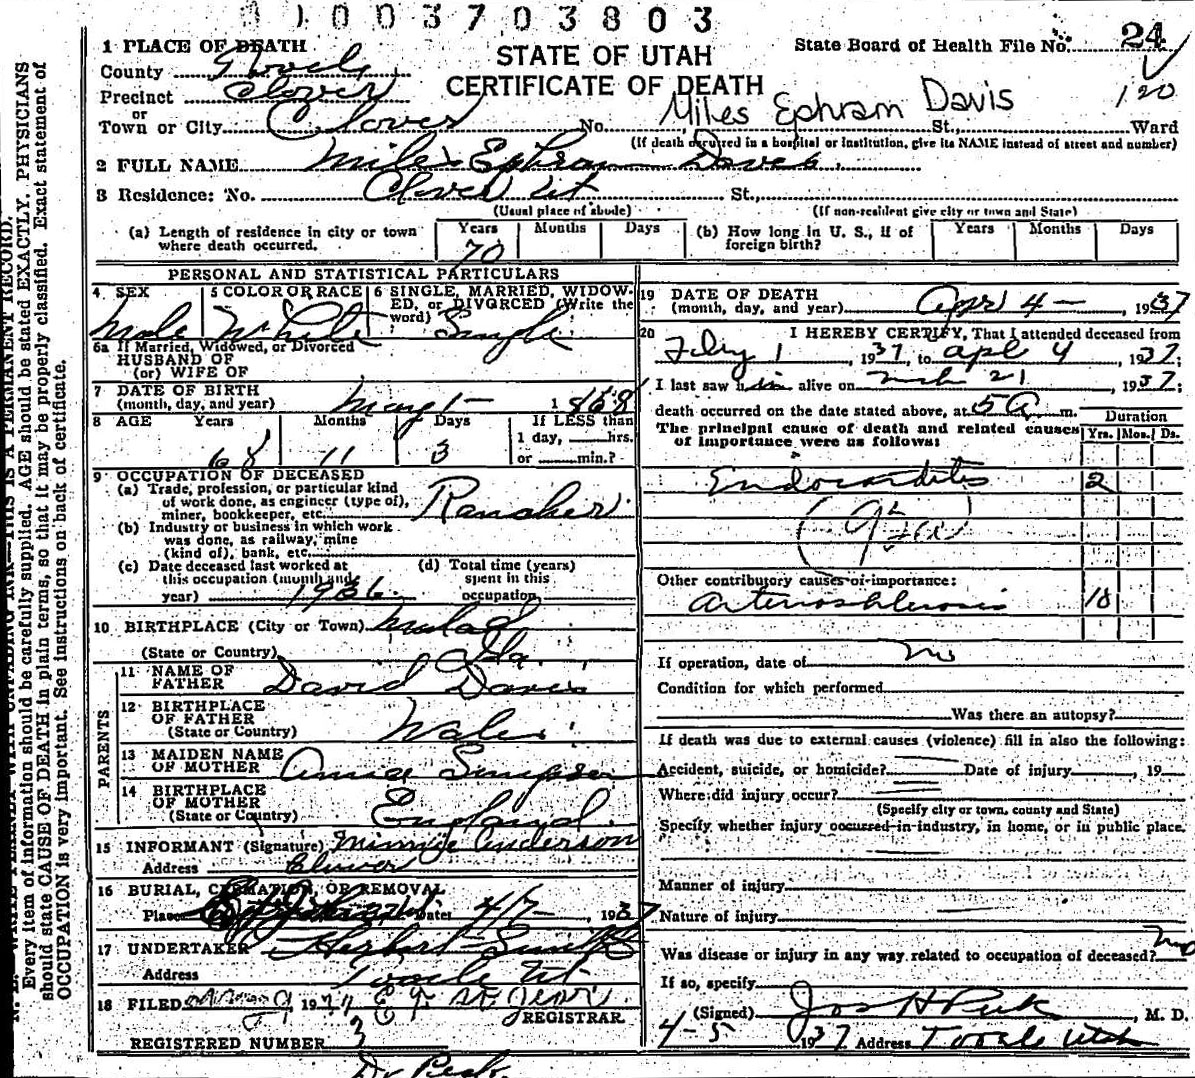 1003703803
STATE OF UTAH
CERTIFICATE OF DEATH
State Board of Health File No. 24
120
1 PLACE OF DEATH
County Tooele
Precinct Clover
or
Town or City Clover No. St., Ward
Miles Ephram Davis
(If death occurred in a hospital or institution, give its NAME instead of street and number)
2 FULL NAME Miles Ephram Davis
3 Residence: No. Clover Ut St.,
(Usual place of abode) (If non-resident give city or town and State)
(a) Length of residence in city or town where death occurred. Years 70 Months Days
(b) How long in U. S., if of foreign birth? Years Months Days
PERSONAL AND STATISTICAL PARTICULARS
4 SEX Male
5 COLOR OR RACE White
6 SINGLE, MARRIED, WIDOWED, or DIVORCED (Write the word) Single
6a If Married, Widowed, or Divorced
HUSBAND OF
(or) WIFE OF
7 DATE OF BIRTH
(month, day, and year) May 1 - 1868
8 AGE Years 68 Months 11 Days 3
If LESS than
1 day, hrs.
or min.?
9 OCCUPATION OF DECEASED
(a) Trade, profession, or particular kind
of work done, as engineer (type of),
miner, bookkeeper, etc. Rancher
(b) Industry or business in which work
was done, as railway, mine
(kind of), bank, etc.
(c) Date deceased last worked at
this occupation (month and
year) 1936
(d) Total time (years)
spent in this
occupation
10 BIRTHPLACE (City or Town) Malad
(State or Country) Ida.
PARENTS
11 NAME OF
FATHER David Davis
12 BIRTHPLACE
OF FATHER
(State or Country) Wales
13 MAIDEN NAME
OF MOTHER Annie Simpson
14 BIRTHPLACE
OF MOTHER
(State or Country) England
15 INFORMANT (Signature) Minnie Anderson
Address Clover
16 BURIAL, CREMATION, OR REMOVAL
Place Date 4/7- , 1937
17 UNDERTAKER Herbert Smith
Address Tooele Ut
18 FILED 9, 19 E. J. St. Jeor
REGISTRAR.
REGISTERED NUMBER 3
Dr Peck
19 DATE OF DEATH
(month, day, and year) Apr 4 - 1937
20 I HEREBY CERTIFY, That I attended deceased from
Feby 1, 1937, to Apl 4, 1937;
I last saw him alive on Mch 21, 1937;
death occurred on the date stated above, at 5 A. m.
The principal cause of death and related causes
of importance were as follows:
Duration
Yrs. Mos. Ds.
Endocarditis 2
Other contributory causes of importance:
Arterioschlerosis 10
If operation, date of no
Condition for which performed
Was there an autopsy?
If death was due to external causes (violence) fill in also the following:
Accident, suicide, or homicide? Date of injury , 19
Where did injury occur?
(Specify city or town, county and State)
Specify whether injury occurred in industry, in home, or in public place.
Manner of injury
Nature of injury
Was disease or injury in any way related to occupation of deceased? No
If so, specify
(Signed) Jos H Peck, M. D.
4-5 1937 Address Tooele Utah
N. B.—WRITE PLAINLY WITH UNFADING INK—THIS IS A PERMANENT RECORD.
Every item of information should be carefully supplied. AGE should be stated EXACTLY. PHYSICIANS
should state CAUSE OF DEATH in plain terms, so that it may be properly classified. Exact statement of
OCCUPATION is very important. See instructions on back of certificate.